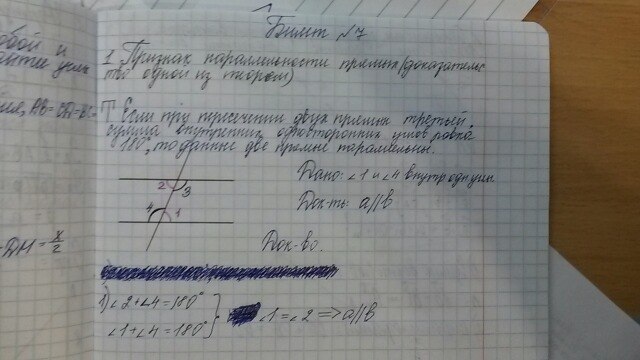 Билет №7
обой и
1 Признак параллельности прямых (доказательс
тво одной из теорем)
AB=CD=BC
Т. Если при пересечении двух прямых третьей
сумма внутренних односторонних углов равна
180°, то данные две прямые параллельны.
Дано: ∠1 и ∠4 внутр одн углы.
2
3
Док-ть: a||b
4
1
-DM = x/2
Док-во.
1) ∠2+∠4=180°
∠1+∠4=180° } ∠1=∠2 => a||b